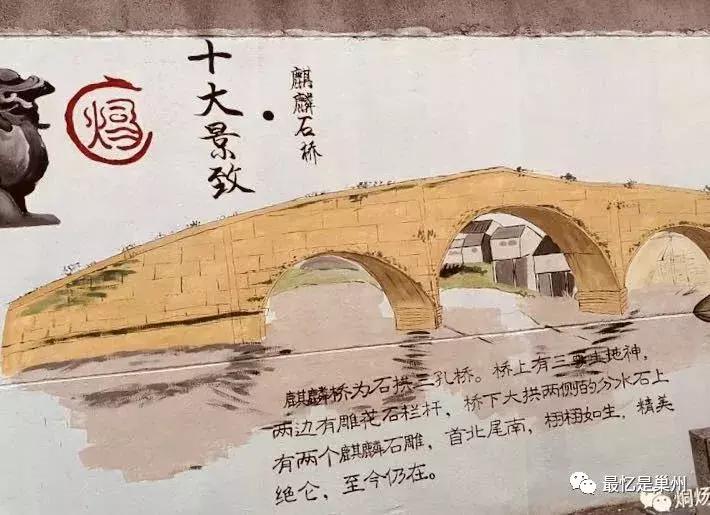 十大景致
·麒麟石桥
麒麟桥为石拱三孔桥。桥上有三尊土地神，
两边有雕花石栏杆，桥下大拱两侧的分水石上
有两个麒麟石雕，首北尾南，栩栩如生，精美
绝仑，至今仍在。
最忆是巢州
烔炀